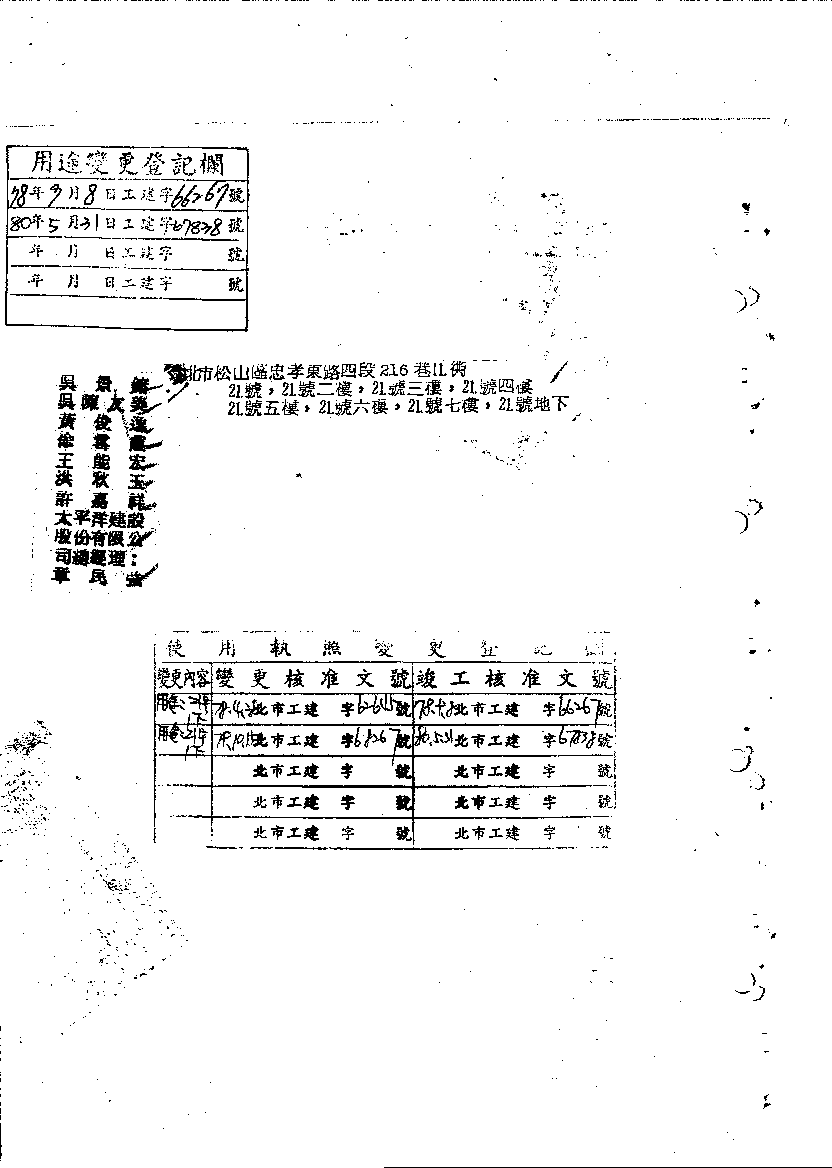 用途變更登記欄
78年9月8日工建字66267號
80年5月31日工建字67838號
年 月 日工建字 號
年 月 日工建字 號
北市松山區忠孝東路四段216巷11衖
21號,21號二樓,21號三樓,21號四樓
21號五樓,21號六樓,21號七樓,21號地下
吳景
吳陳友美
黃俊
徐雲
王能宏
洪秋玉
許嘉祥
太平洋建設
股份有限公
司總經理:
章民強
使用執照變更登記欄
變更內容 變更核准文號 竣工核准文號
北市工建 字 號 北市工建 字66267號
北市工建 字68267號 80.5.31北市工建 字67838號
北市工建 字 號 北市工建 字 號
北市工建 字 號 北市工建 字 號
北市工建 字 號 北市工建 字 號